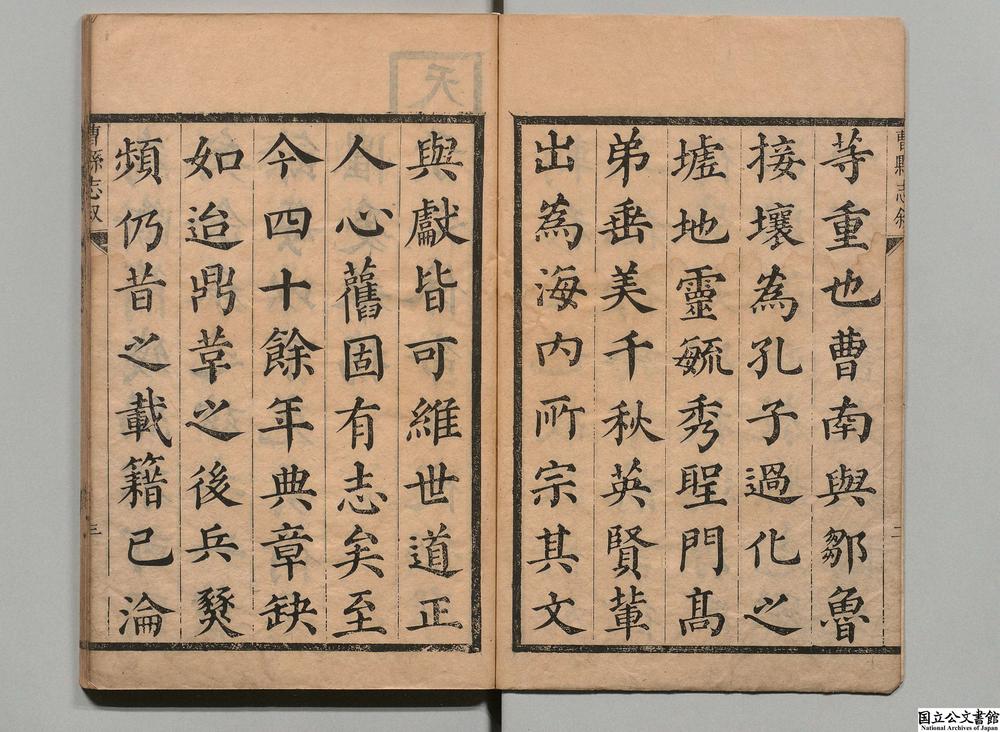 曹縣志叙
二
等重也曹南與鄒魯
接壤為孔子過化之
墟地靈毓秀聖門高
弟垂美千秋英賢輩
出為海内所宗其文
與獻皆可維世道正
人心舊固有志矣至
今四十餘年典章缺
如迨鼎革之後兵燹
頻仍昔之載籍已淪
曹縣志叙
三
天
国立公文書館
National Archives of Japan